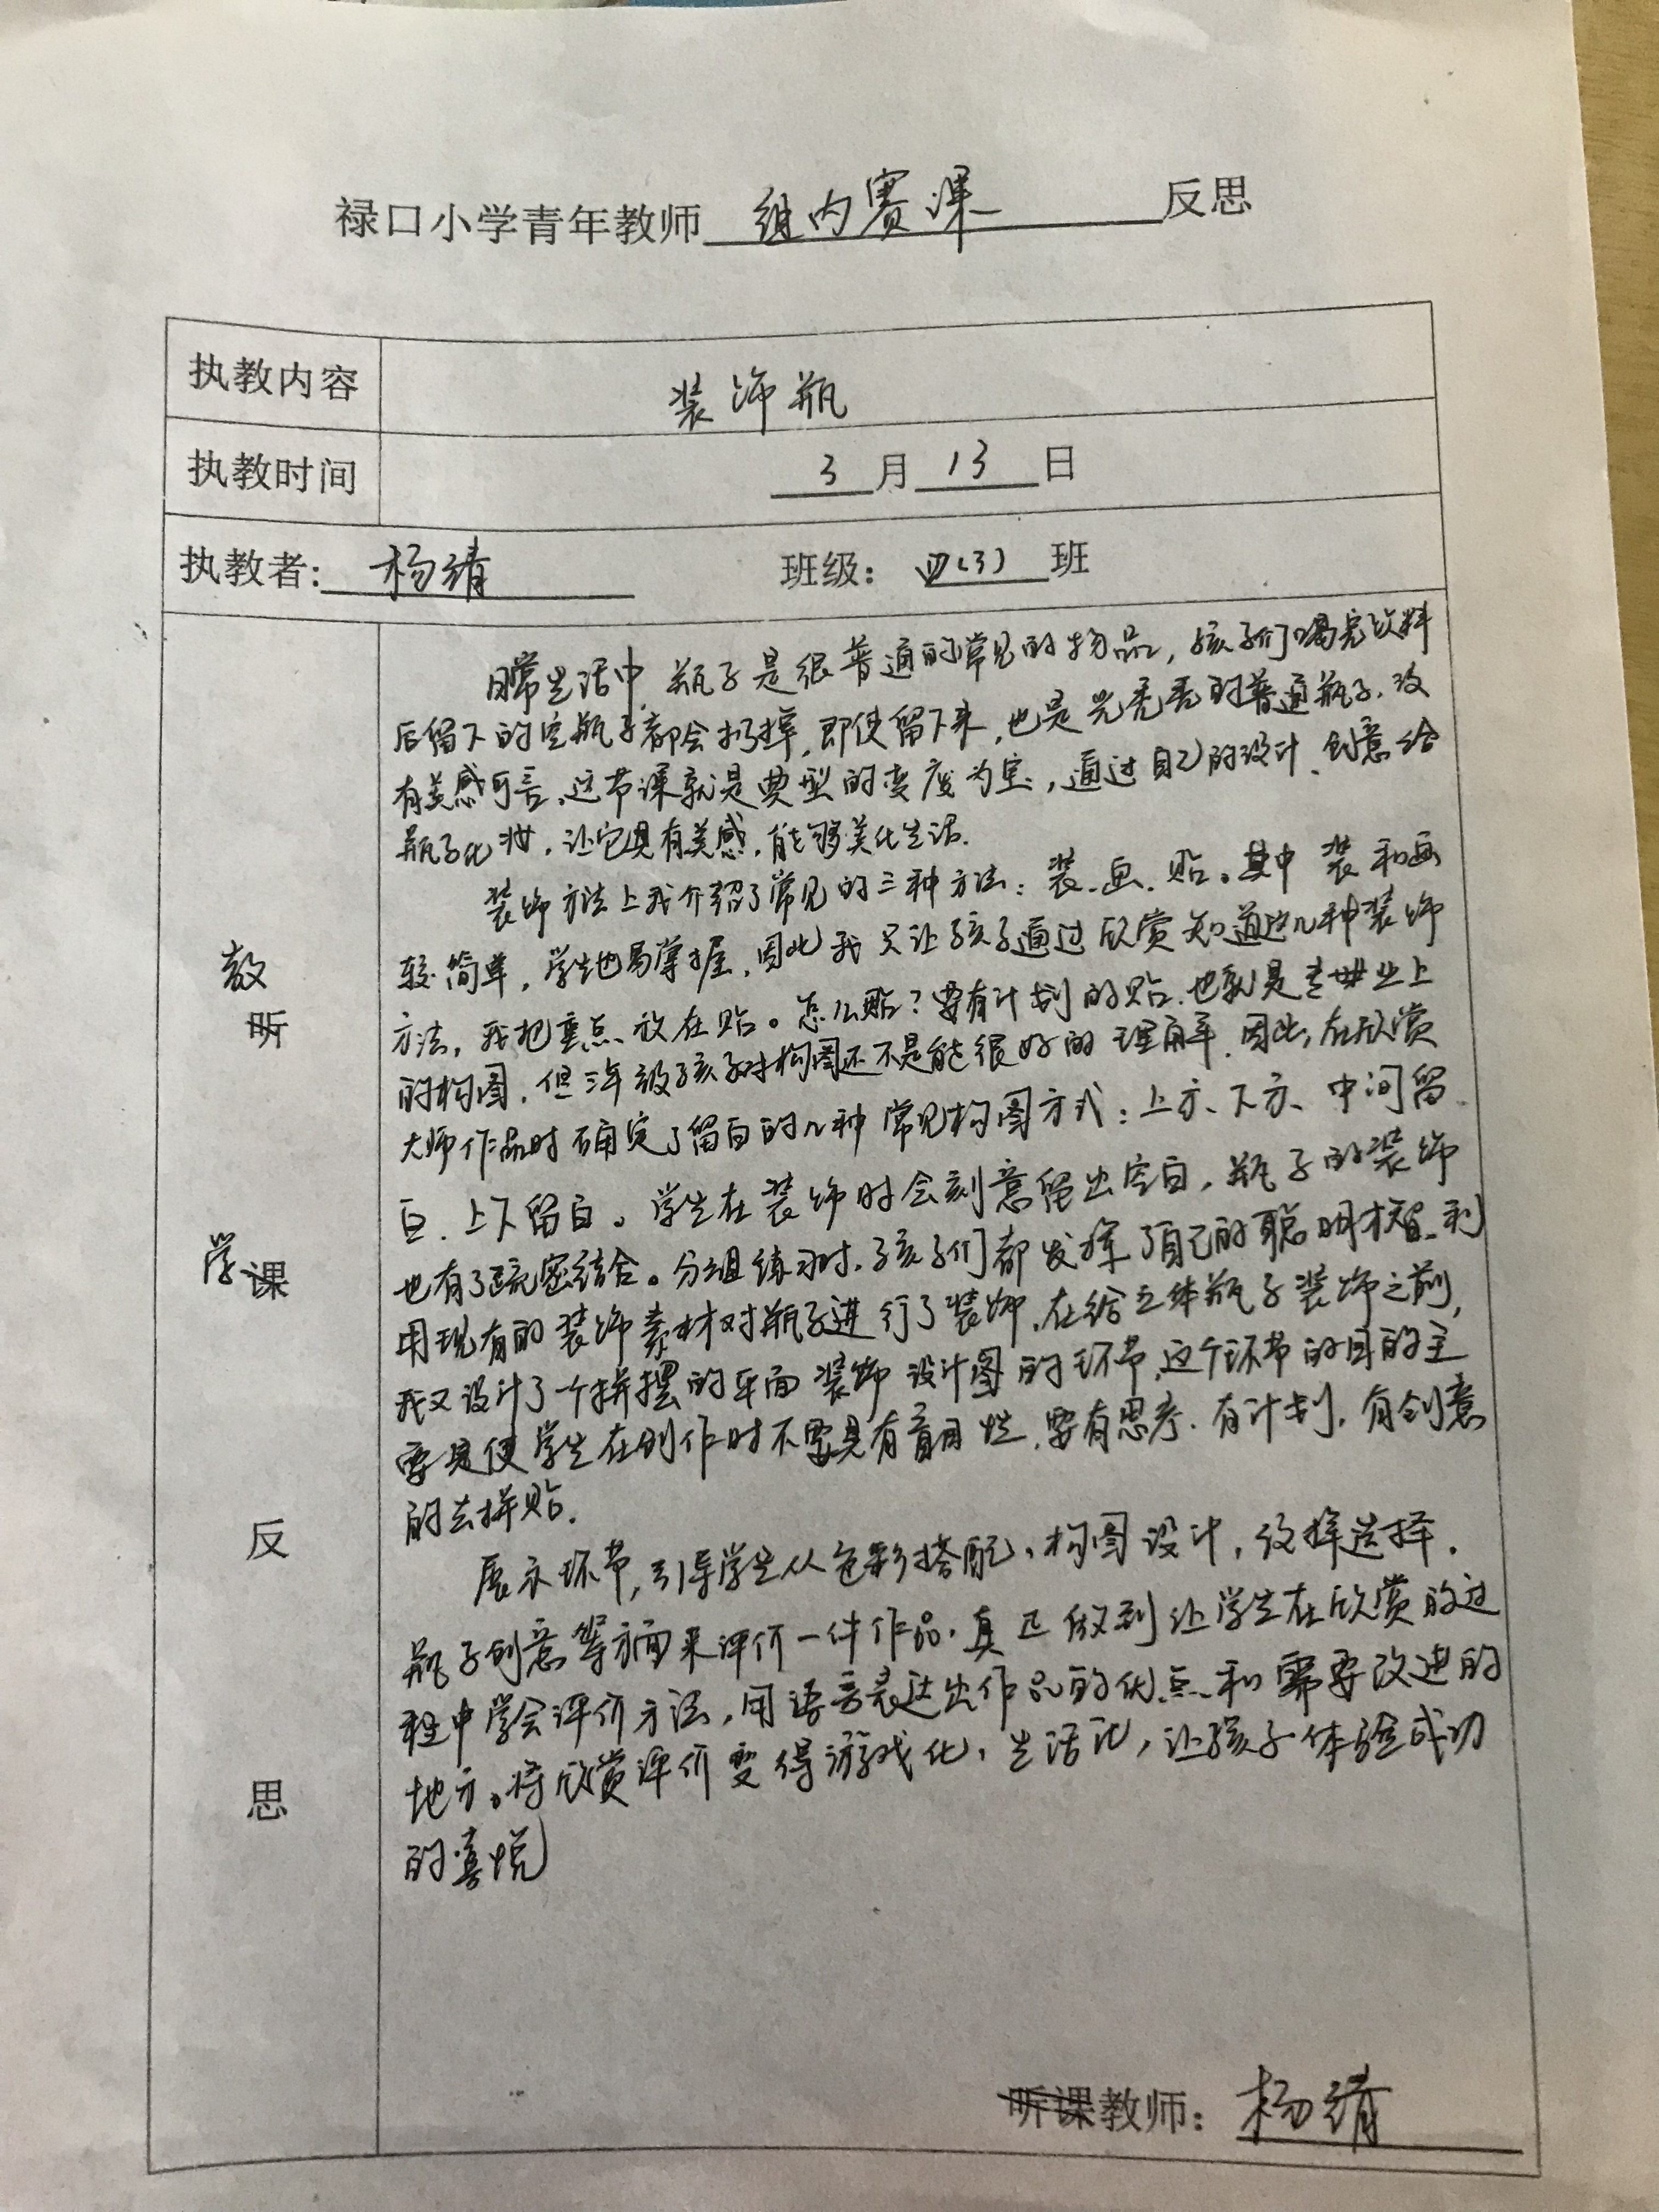 禄口小学青年教师 组内赛课 反思
执教内容 装饰瓶
执教时间 3月13日
执教者: 杨绮 班级: 四(3) 班
教听
学课
反
思
日常生活中,瓶子是很普通的常见的物品,孩子们喝完饮料
后留下的空瓶子都会扔掉,即使留下来,也是光秃秃的普通瓶子,没
有美感可言。这节课就是典型的变废为宝,通过自己的设计、创意给
瓶子化妆,让它具有美感,能够美化生活.
装饰方法上我介绍了常见的三种方法:装、画、贴。其中装和画
较简单,学生也易掌握,因此我只让孩子通过欣赏知道这几种装饰
方法,我把重点放在贴。怎么贴?要有计划的贴,也就是专业上
的构图,但三年级孩子对构图还不是能很好的理解,因此,在欣赏
大师作品时确定了留白的几种常见构图方式:上方、下方、中间留
白、上下留白。学生在装饰时会刻意留出空白,瓶子的装饰
也有了疏密结合。分组练习时,孩子们都发挥了自己的聪明才智,利
用现有的装饰素材对瓶子进行了装饰,在给立体瓶子装饰之前,
我又设计了一个拼摆的平面装饰设计图的环节,这个环节的目的主
要是使学生在创作时不要具有盲目性,要有思考、有计划,有创意
的去拼贴.
展示环节,引导学生从色彩搭配、构图设计,纹样选择、
瓶子创意等方面来评价一件作品,真正做到让学生在欣赏的过
程中学会评价方法,用语言表达出作品的优点和需要改进的
地方。将欣赏评价变得游戏化,生活化,让孩子体验成功
的喜悦
听课教师: 杨绮